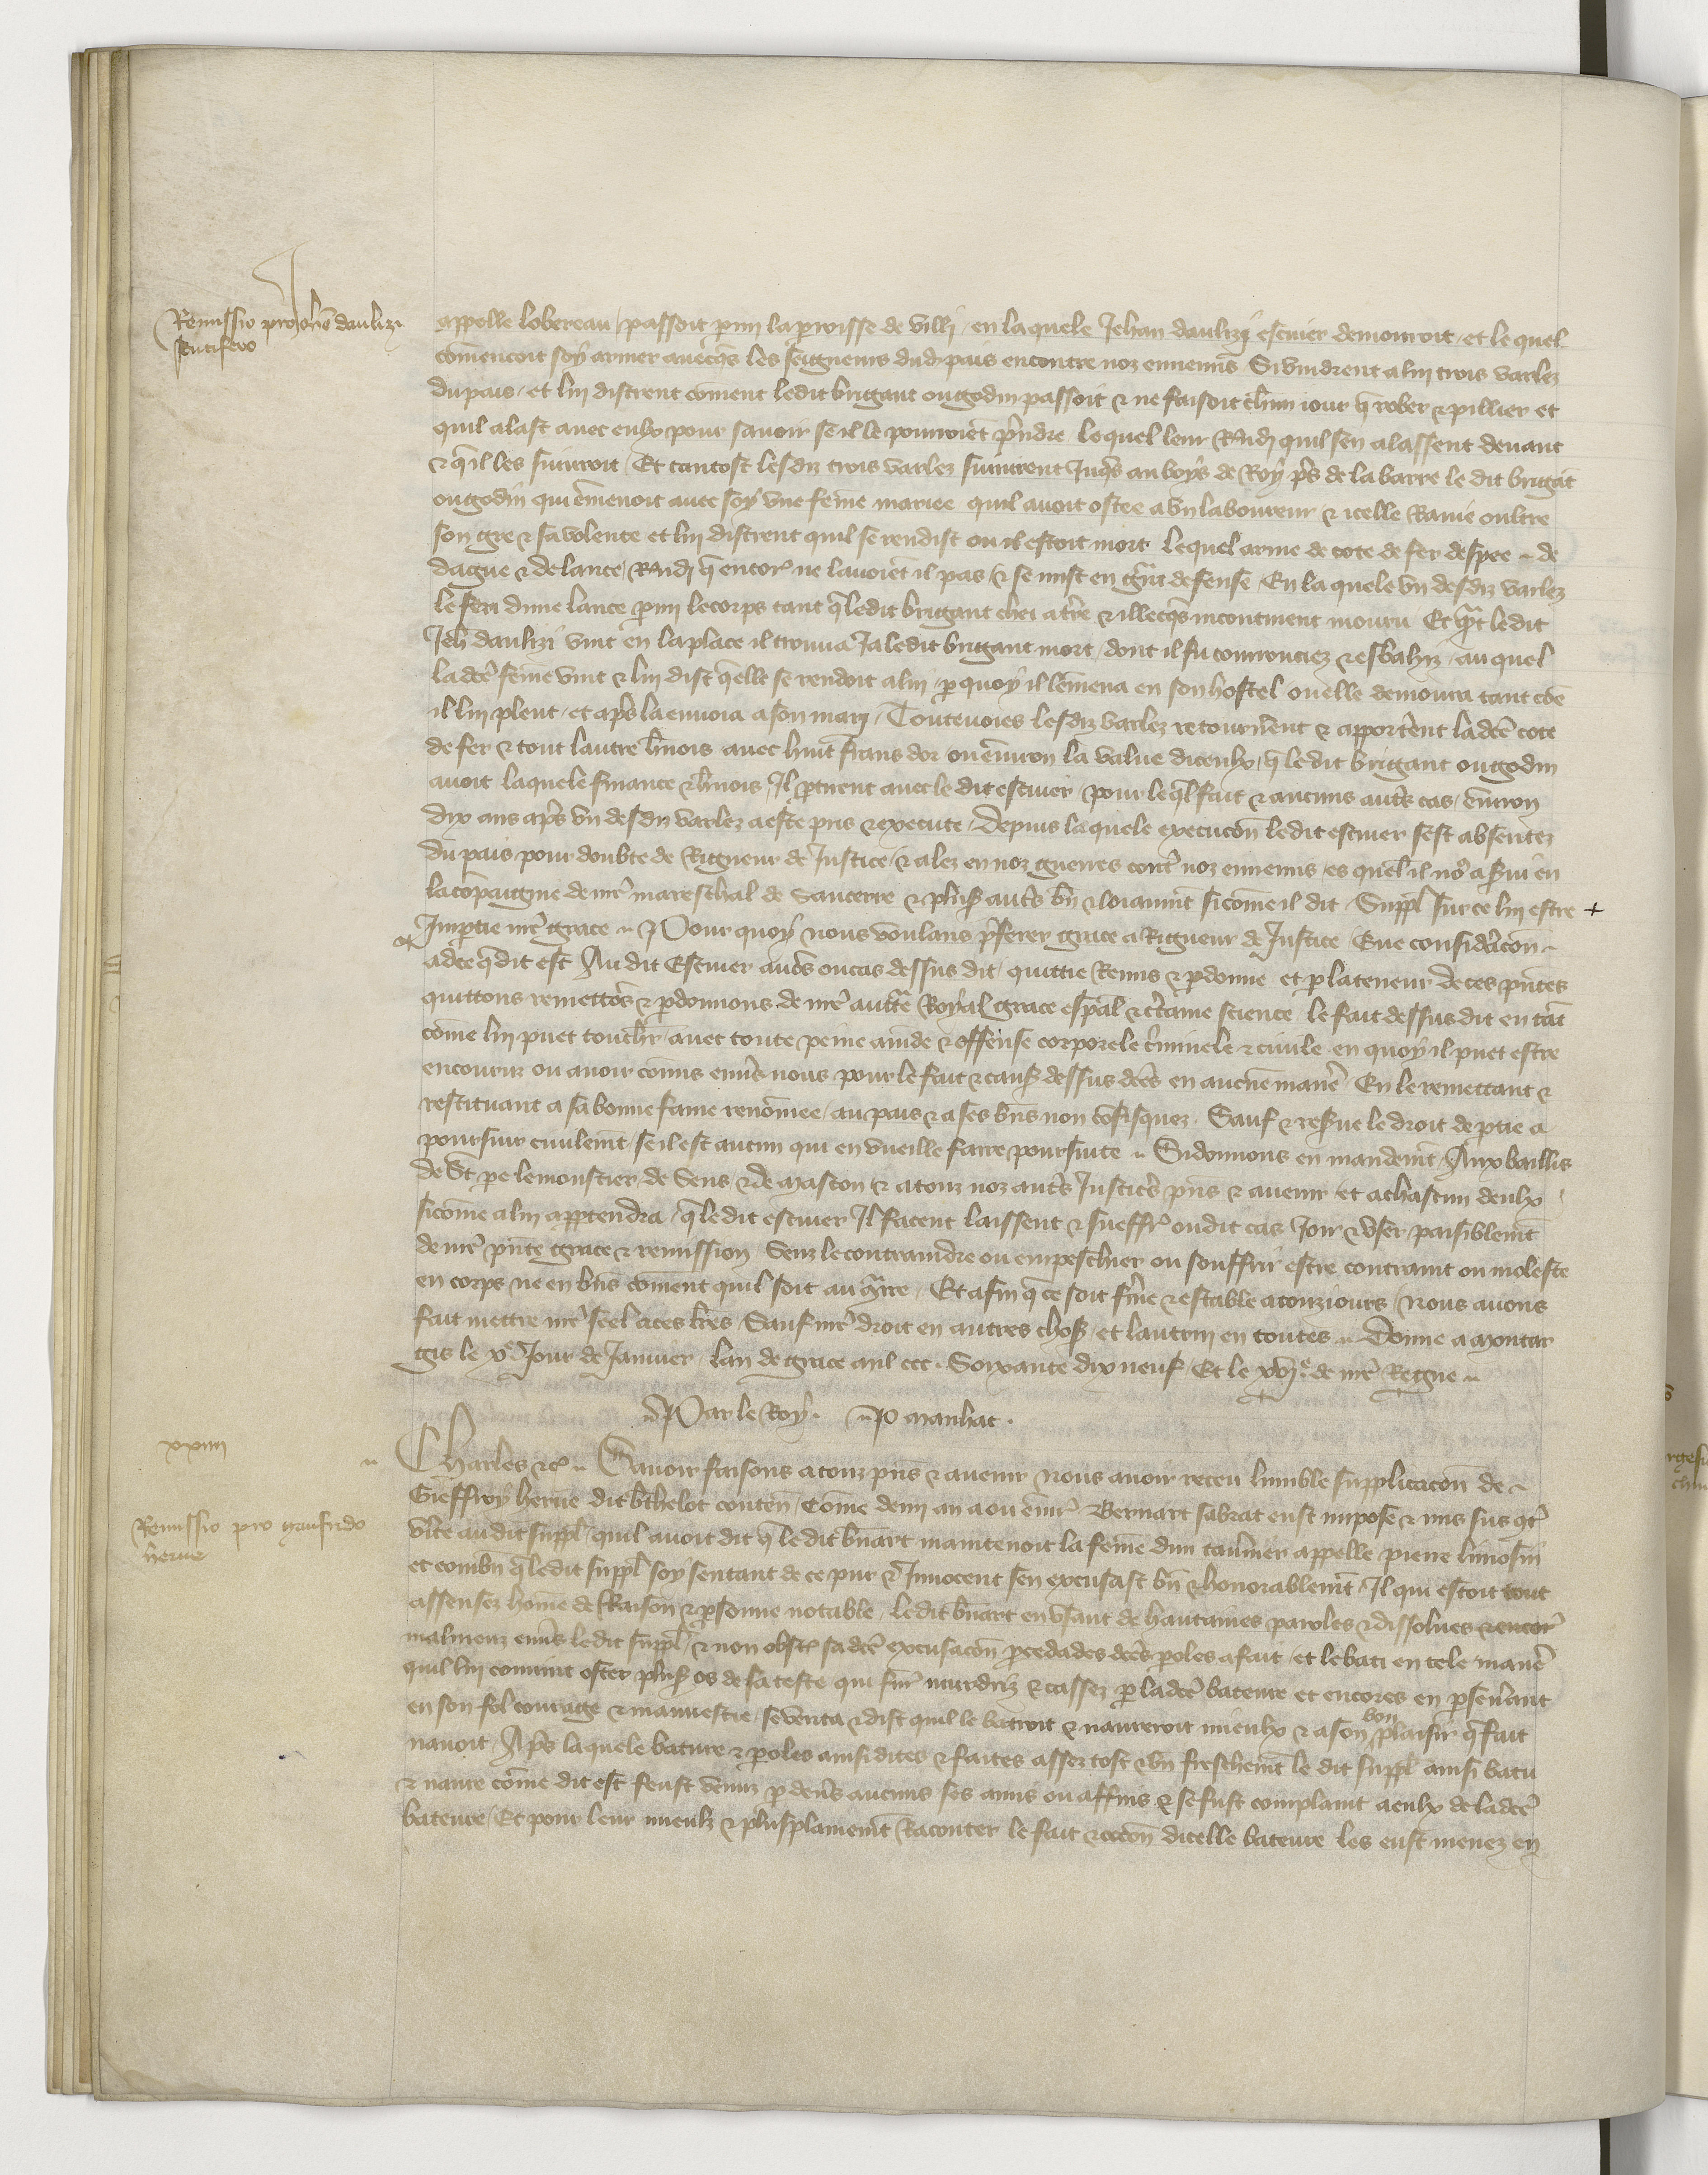 Remissio pro Johe daulizi
scutifero
appelle lobereau passoit pmi la proisse de villi en laquele Jehan daulizi escuier demouroit et le quel
comencoit soy armer avecqs les seigneurs dud pais encontre noz ennemis Si vindrent a lui trois varlez
du pais et lui distrent coment ledit brigant ougodin passoit & ne faisoit chun iour q rober & pillier et
quil alast avec eulx pour savoir se il le pourroiet prndre lequel leur Rndi quil sen alassent devant
& qil les suiuroit Et tantost lesdiz trois varlez suiuirent Jusqs au boys de Roy prs de la barre le dit brigat
ougodin qui emenoit avec soy une feme mariee quil avoit ostee a un laboureur & icelle Ravie oultre
son gre & sa volente et lui distrent quil se rendist ou il estoit mort lequel arme de cote de fer despee de
dague & de lance Rndi q encor ne lavoiet il pas & se mist en grnt defense En la quele un desdiz varlez
le feri dune lance pmi le corps tant q ledit brigant chei a tre & illecqs incontinent mouru Et qnt ledit
Jeh daulizi vint en la place il trouva Ja ledit brigant mort dont il fu courrouciez & esbahiz au quel
la dce feme vint & lui dist qelle se rendoit a lui p quoy il lemena en son hostel ou elle demoura tant coe
il lui pleut et aps la envoia a son mary Toutevoies lesdiz varlez retournerent & apporterent ladce cote
de fer & tout lautre hnois avec huit frans dor ou environ la value diceulx q le dit brigant ougodin
avoit laquele finance & hnois Il ptirent avec le dit escuier pour leql fait & aucuns autres cas environ
dix ans aprs un desdiz varlez a este pris & execute Depuis laquele execucon ledit escuier sest absentez
du pais pour doubte de Rigueur de Justice & alez en noz guerres contre noz ennemis es quel il no a servi en
la compaignie de nre mareschal de Sancerre & plus autrs bn & loiaumnt sicome il dit Suppl sur ce lui estre +
Imptie nre grace Pour quoy nous voulans preferer grace a Rigueur de Justice Eue consideracon
a dce q dit est Au dit Escuier avos ou cas dessus dit quittie Remis & pdonne et p la teneur de ces pntes
quittons remettos & pdonnons de nre auctte Royal grace espal & certaine science le fait dessus dit en tat
come lui puet touchr avec toute peine amde & offense corporele criminele & civile en quoy il puet estre
encouruz ou avoir comis envers nous pour le fait & caus dessus dces en aucune manre En le remettant &
restituant a sa bonne fame renomee au pais & a ses bns non cofisquez Sauf & reserve le droit de ptie a
poursuir civilemt se il est aucun qui en vueille faire poursuite Si donnons en mandemt Aux baillis
de St pe le monstier de Sens & de mascon & a touz noz autrs Justicers prns & avenir et a chascun deulx
sicome a lui apptendra q le dit escuier Il facent laissent & sueffr ou dit cas Joir & user paisiblemt
de nre pnte grace & remission Senz le contraindre ou empeschier ou souffrir estre contraint ou moleste
en corps ne en bns coment quil soit au contrre Et afin q ce soit ferme & estable a touziours Nous avons
fait mettre nre seel a ces lres Sauf nre droit en autres chos et lautruy en toutes Donne a montar
gis le xe Jour de Janvier lan de grace mil ccc Soixante dix neuf Et le xvie de nre Regne
Par le Roy P manhac
xxiiii
Remissio pro gaufrido
herve
Charles &c Savoir faisons a touz pns & avenir Nous avoir receu humble supplicacon de
Gieffroy herve dit bthelot conten Come demi an a ou envir Bernart sabrat eust impose & mis sus contr
vite au dit suppl quil avoit dit q le dit bnart maintenoit la feme dun tavrnier appelle pierre limosin
et combn q le dit suppl soy sentant de ce pur & Innocent sen excusast bn & honorablemt Il qui estoit tout
assensez home de Raison & psonne notable le dit bnart en usant de hautaines paroles & dissolues & encor
malmeuz envs le dit suppl & non obst sa dce excusacon pcedades dces poles a fait et le bati en tele manre
quil lui convint oster plus os de sa teste qui fur murdriz & cassez p la dce bateure et encores en psevrant
en son fol courage & mauvestie se venta & dist quil le batroit & navreroit mieulx & a son bon plaisir q fait
navoit Aprs laquele bature & poles ainsi dites & faites assez tost & bn freschemt le dit suppl ainsi batu
& navre come dit est feust venuz p devrs aucuns ses amis ou affins & se fust complaint a eulx de la dce
bateure Et pour leur mieulz & plus plainemt Raconter le fait & occon dicelle bateure les eust menez en